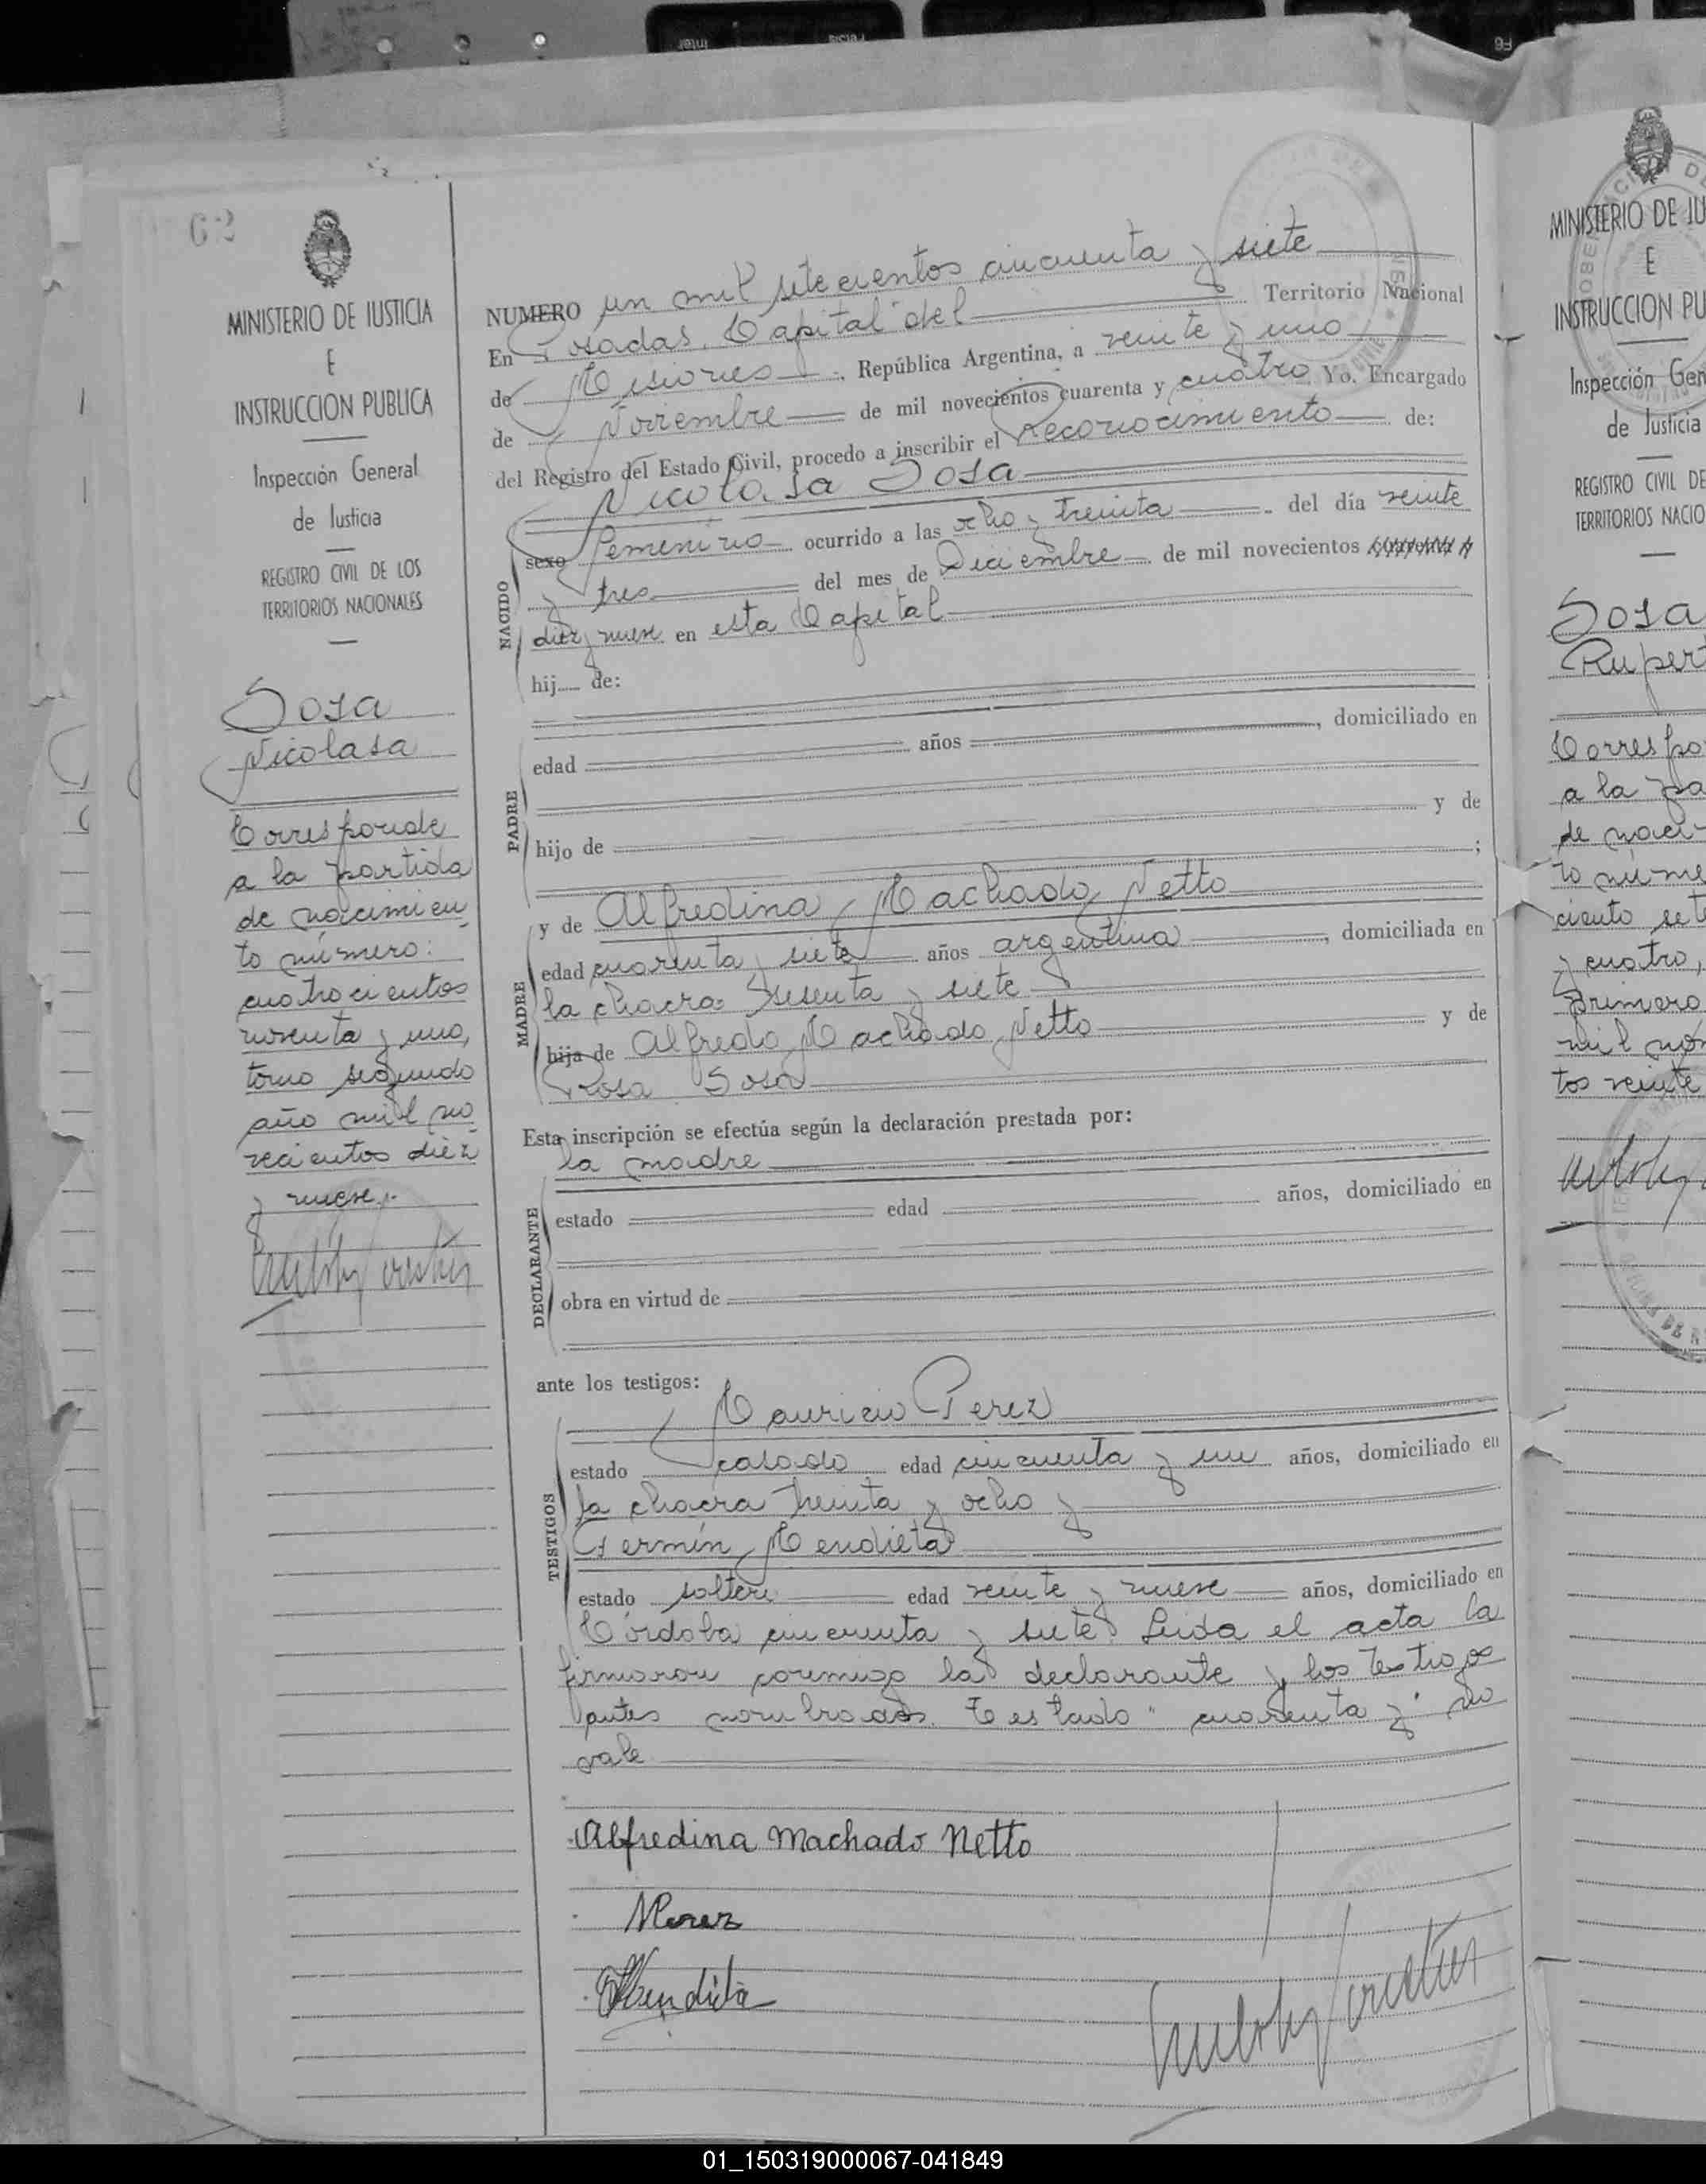 62
MINISTERIO DE JUSTICIA
E
INSTRUCCION PUBLICA
Inspección General
de Justicia
REGISTRO CIVIL DE LOS
TERRITORIOS NACIONALES
Sosa
Nicolasa
Corresponde
a la partida
de nacimien
to número:
cuatrocientos
noventa y uno,
tomo segundo
año mil no
vecientos diez
y nueve.
NUMERO un mil setecientos cincuenta y siete
En Posadas, Capital del Territorio Nacional
de Misiones, República Argentina, a veinte y uno
de Noviembre de mil novecientos cuarenta y cuatro Yo, Encargado
del Registro del Estado Civil, procedo a inscribir el Reconocimiento de:
Nicolasa Sosa
NACIDO
sexo femenino ocurrido a las ocho y treinta del día veinte
y tres del mes de Diciembre de mil novecientos
diez y nueve en esta Capital
hij de:
PADRE
edad años , domiciliado en
hijo de y de
;
MADRE
y de Alfredina Machado Netto
edad cuarenta y siete años argentina, domiciliada en
la chacra sesenta y siete
hija de Alfredo Machado Netto y de
Rosa Sosa
Esta inscripción se efectúa según la declaración prestada por:
la madre
DECLARANTE
estado edad años, domiciliado en
obra en virtud de
ante los testigos:
Mauricio Perez
TESTIGOS
estado casado edad cincuenta y un años, domiciliado en
la chacra treinta y ocho y
Germín Mendieta
estado soltero edad veinte y nueve años, domiciliado en
Córdoba cincuenta y siete. Leida el acta la
firmaron conmigo la declarante y los testigos
antes nombrados. Testado "cuarenta y" no
vale
Alfredina Machado Netto
MPerez
Mendieta
MINISTERIO DE JU
E
INSTRUCCION PU
Inspección Gen
de Justicia
REGISTRO CIVIL DE
TERRITORIOS NACIO
Sosa
Rupert
Correspo
a la pa
de naci
to núme
ciento set
y cuatro,
primero
mil nov
tos veinte
01_150319000067-041849